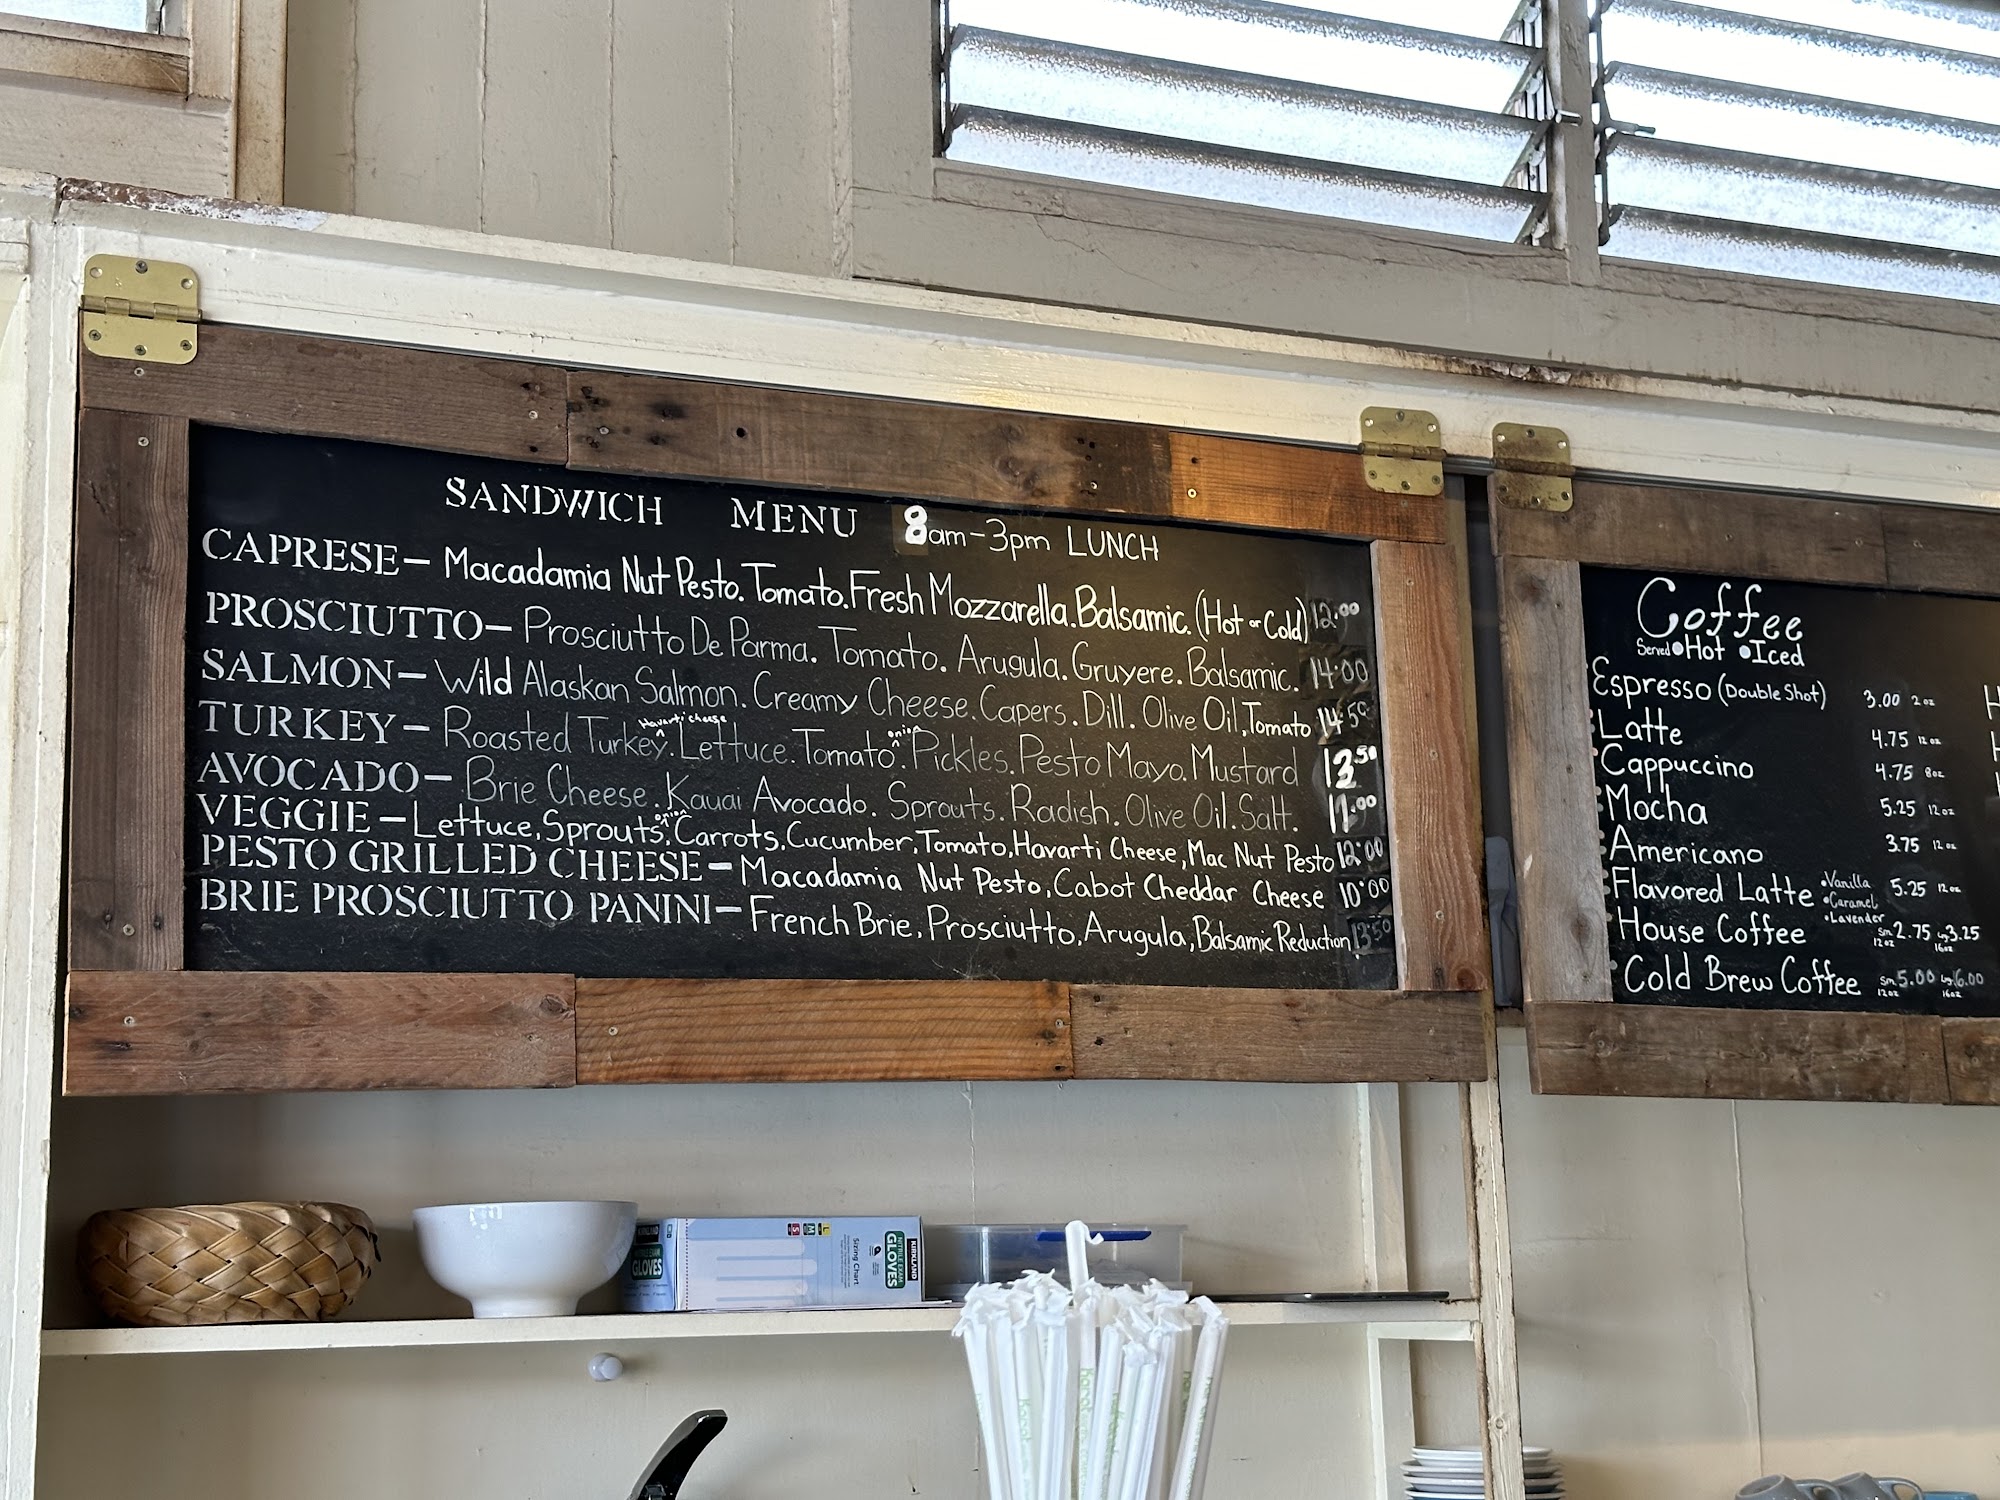 SANDWICH MENU 8am-3pm LUNCH
CAPRESE- Macadamia Nut Pesto. Tomato. Fresh Mozzarella. Balsamic. (Hot or Cold) 12.00
PROSCIUTTO- Prosciutto De Parma. Tomato. Arugula. Gruyere. Balsamic. 14.00
SALMON- Wild Alaskan Salmon. Creamy Cheese. Capers. Dill. Olive Oil, Tomato 14.50
TURKEY- Roasted Turkey. ^Havarti cheese Lettuce. Tomato ^onion. Pickles. Pesto Mayo. Mustard 13.50
AVOCADO- Brie Cheese. Kauai Avocado. Sprouts. Radish. Olive Oil. Salt. 11.00
VEGGIE- Lettuce, Sprouts, ^onion Carrots, Cucumber, Tomato, Havarti Cheese, Mac Nut Pesto 12.00
PESTO GRILLED CHEESE- Macadamia Nut Pesto, Cabot Cheddar Cheese 10.00
BRIE PROSCIUTTO PANINI- French Brie, Prosciutto, Arugula, Balsamic Reduction 13.50
Coffee
Served •Hot •Iced
Espresso (Double Shot) 3.00 2oz
Latte 4.75 12oz
Cappuccino 4.75 8oz
Mocha 5.25 12oz
Americano 3.75 12oz
Flavored Latte •Vanilla •Caramel •Lavender 5.25 12oz
House Coffee sm 12oz 2.75 Lg 16oz 3.25
Cold Brew Coffee sm 12oz 5.00 Lg 16oz 6.00
KIRKLAND
GLOVES
S M L
Sizing Chart
KIRKLAND
NITRILE EXAM
GLOVES